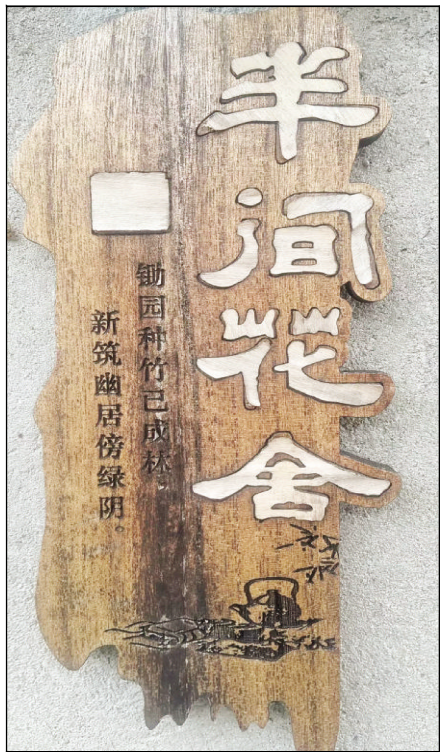 半间花舍
锄园种竹已成林，
新筑幽居傍绿阴。